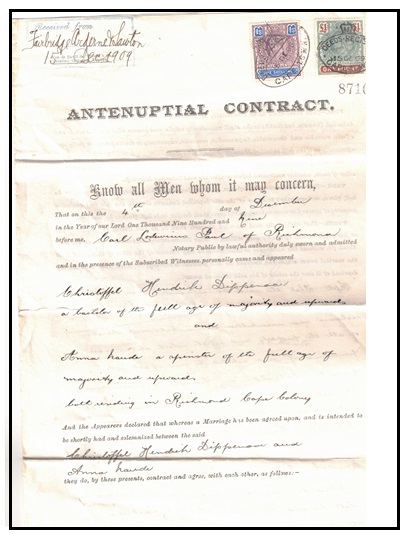 Received from
Fairbridge Arderne & Lawton
15 Dec 1909
£1
£1
ONE SHILLING
£1
CAPE TOWN
8716
ANTENUPTIAL CONTRACT.
Know all Men whom it may concern,
That on this the 4th day of December
in the Year of our Lord One Thousand Nine Hundred and Nine
before me, Carl Lodewicus Paul of Richmond
Notary Public by lawful authority duly sworn and admitted
and in the presence of the Subscribed Witnesses, personally came and appeared
Christoffel Hendrik Dippenaar
a bachelor of the full age of majority and upwards
and
Anna Naude a spinster of the full age of
majority and upwards,
both residing in Richmond Cape Colony
And the Appearers declared that whereas a Marriage has been agreed upon, and is intended
to be shortly had and solemnized between the said
Christoffel Hendrik Dippenaar and
Anna Naude
they do, by these presents, contract and agree, with each other, as follows:–